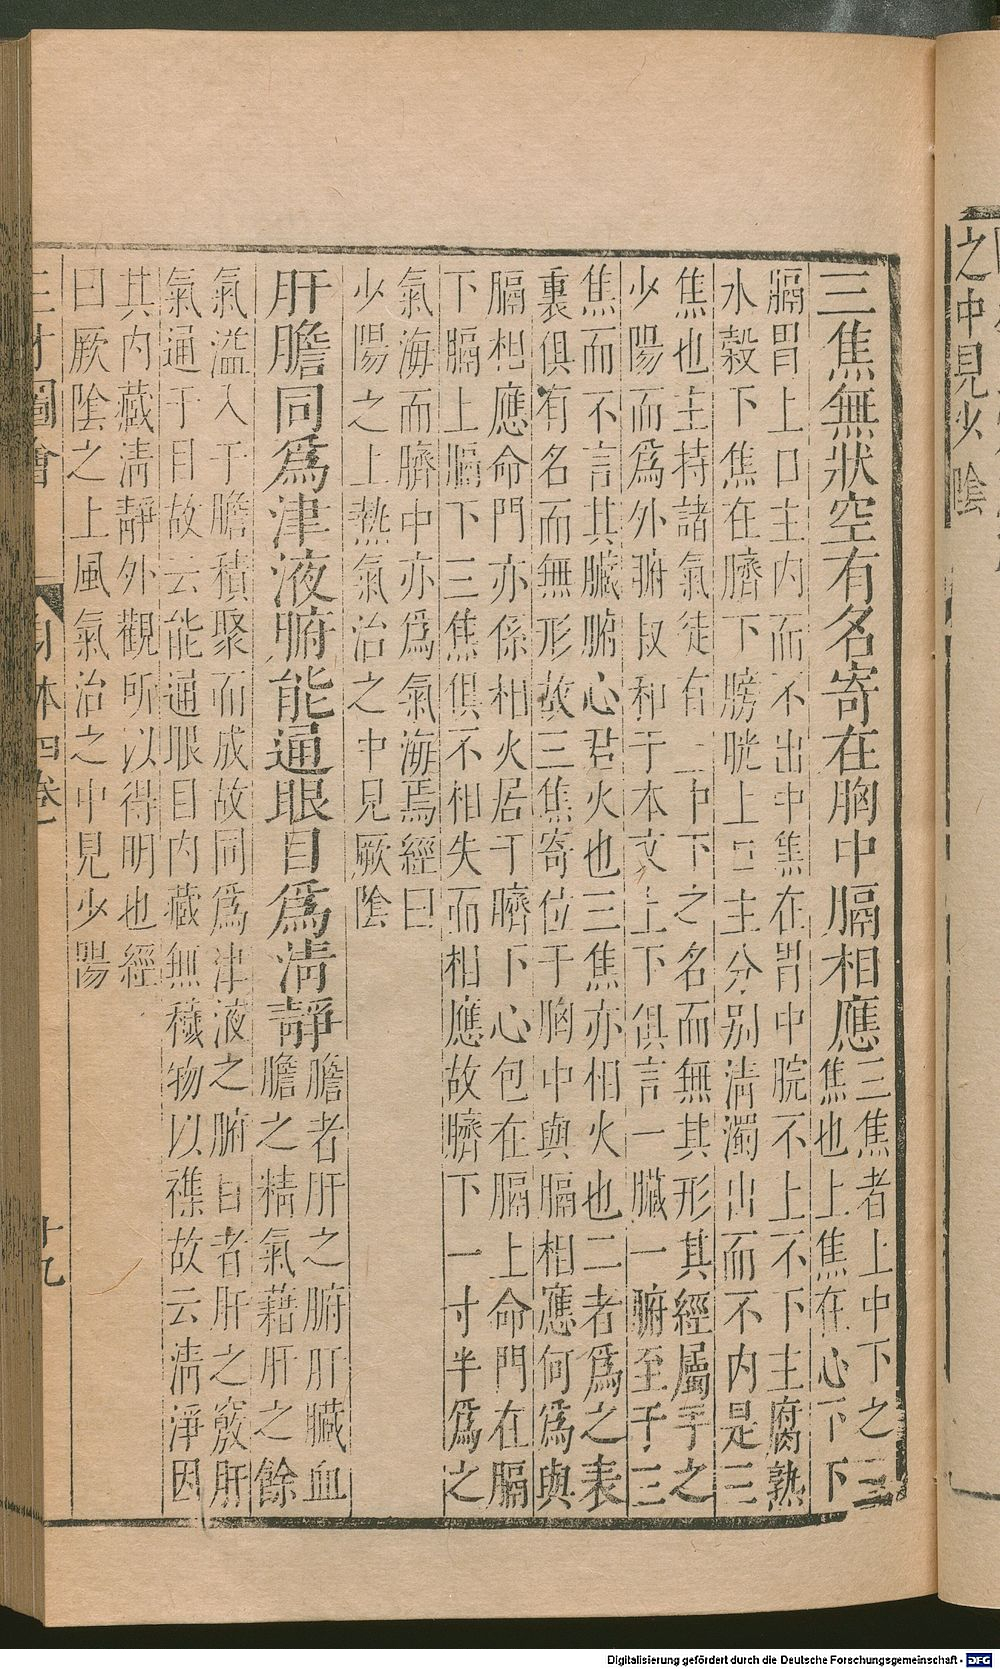 之中見少陰
三焦無狀空有名寄在胸中膈相應
三焦者上中下之三
焦也上焦在心下下
膈胃上口主内而不出中焦在胃中脘不上不下主腐熟
水穀下焦在臍下膀胱上口主分别清濁出而不内是三
焦也主持諸氣徒有上中下之名而無其形其經屬手之
少陽而爲外腑叔和于本文上下俱言一臟一腑至于三
焦而不言其臟腑心君火也三焦亦相火也二者爲之表
裏俱有名而無形故三焦寄位于胸中與膈相應何爲與
膈相應命門亦係相火居于臍下心包在膈上命門在膈
下膈上膈下三焦俱不相失而相應故臍下一寸半爲之
氣海而臍中亦爲氣海焉經曰
少陽之上熱氣治之中見厥陰
肝膽同爲津液腑能通眼目爲清靜
膽者肝之腑肝臟血
膽之精氣藉肝之餘
氣滥入于膽積聚而成故同爲津液之腑目者肝之竅肝
氣通于目故云能通眼目内藏無穢物以襍故云清淨因
其内藏清靜外觀所以得明也經
曰厥陰之上風氣治之中見少陽
三才圖會
身体四卷
十九
Digitalisierung gefördert durch die Deutsche Forschungsgemeinschaft - DFG